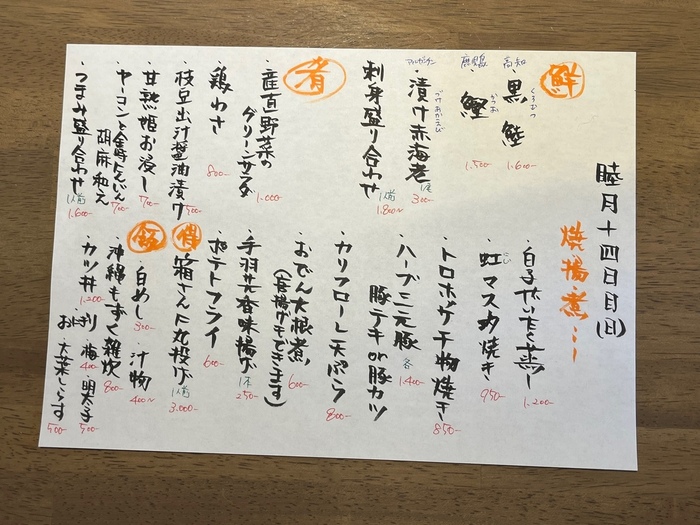 睦月十四日(日)
鮮
高知
・黒鯥
くろむつ
1.600-
鹿児島
・鰹
かつお
1.500-
アルゼンチン
・漬け赤海老
づけあかえび
1尾
300-
・刺身盛り合わせ
1人前
1.800〜
肴
・産直野菜の
グリーンサラダ
1.000-
・鶏わさ
800-
・枝豆出汁醤油漬け
500-
・甘熟姫お浸し
700-
・ヤーコンと金時にんじん
胡麻和え
700-
・つまみ盛り合わせ
1人前
1.600-
焼・揚・煮…
・白子ぜいたく蒸し
1.200-
・虹マス西京焼き
にじ
950-
・トロホッケ干物焼き
850-
・ハーブ三元豚
豚テキor豚カツ
各
1.400-
・カリフローレ天ぷら
800-
・おでん大根煮
(唐揚げもできます)
600-
・手羽先香味揚げ
1本
250-
・ポテトフライ
600-
・箱さんに丸投げ
1人前
3.000-
飯
・白めし
300-
・汁物
400〜
・沖縄もずく雑炊
800-
・カツ丼
1.200-
おにぎり
・梅
400-
・明太子
500-
・大葉しらす
500-